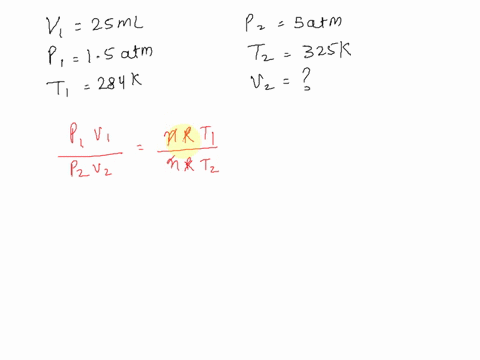 V₁ = 25mL
P₁ = 1.5 atm
T₁ = 284 K
P₂ = 5 atm
T₂ = 325K
V₂ = ?
P₁ V₁ / P₂ V₂ = n R T₁ / n R T₂